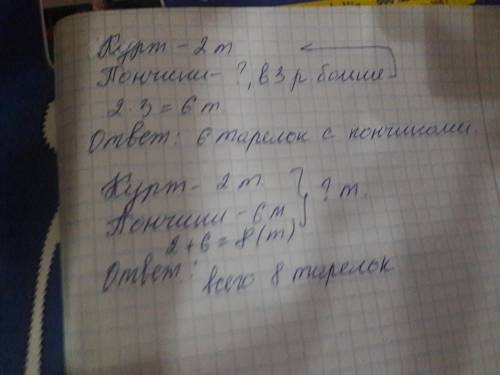 Курт - 2 т
Пончики - ?, в 3 р. больше
2 · 3 = 6 т
Ответ: 6 тарелок с пончиками.
Курт - 2 т.
Пончики - 6 т. } ? т.
2 + 6 = 8 (т)
Ответ: всего 8 тарелок